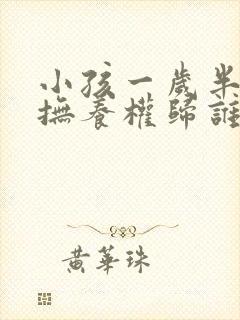 小孩一歲半
撫養權歸誰
黃華珠